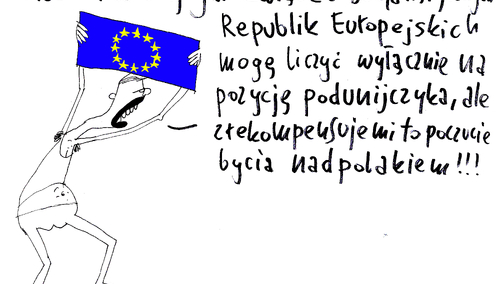 Republik Europejskich
mogę liczyć wyłącznie na
pozycję podunijczyka, ale
zrekompensuje mi to poczucie
bycia nadpolakiem!!!